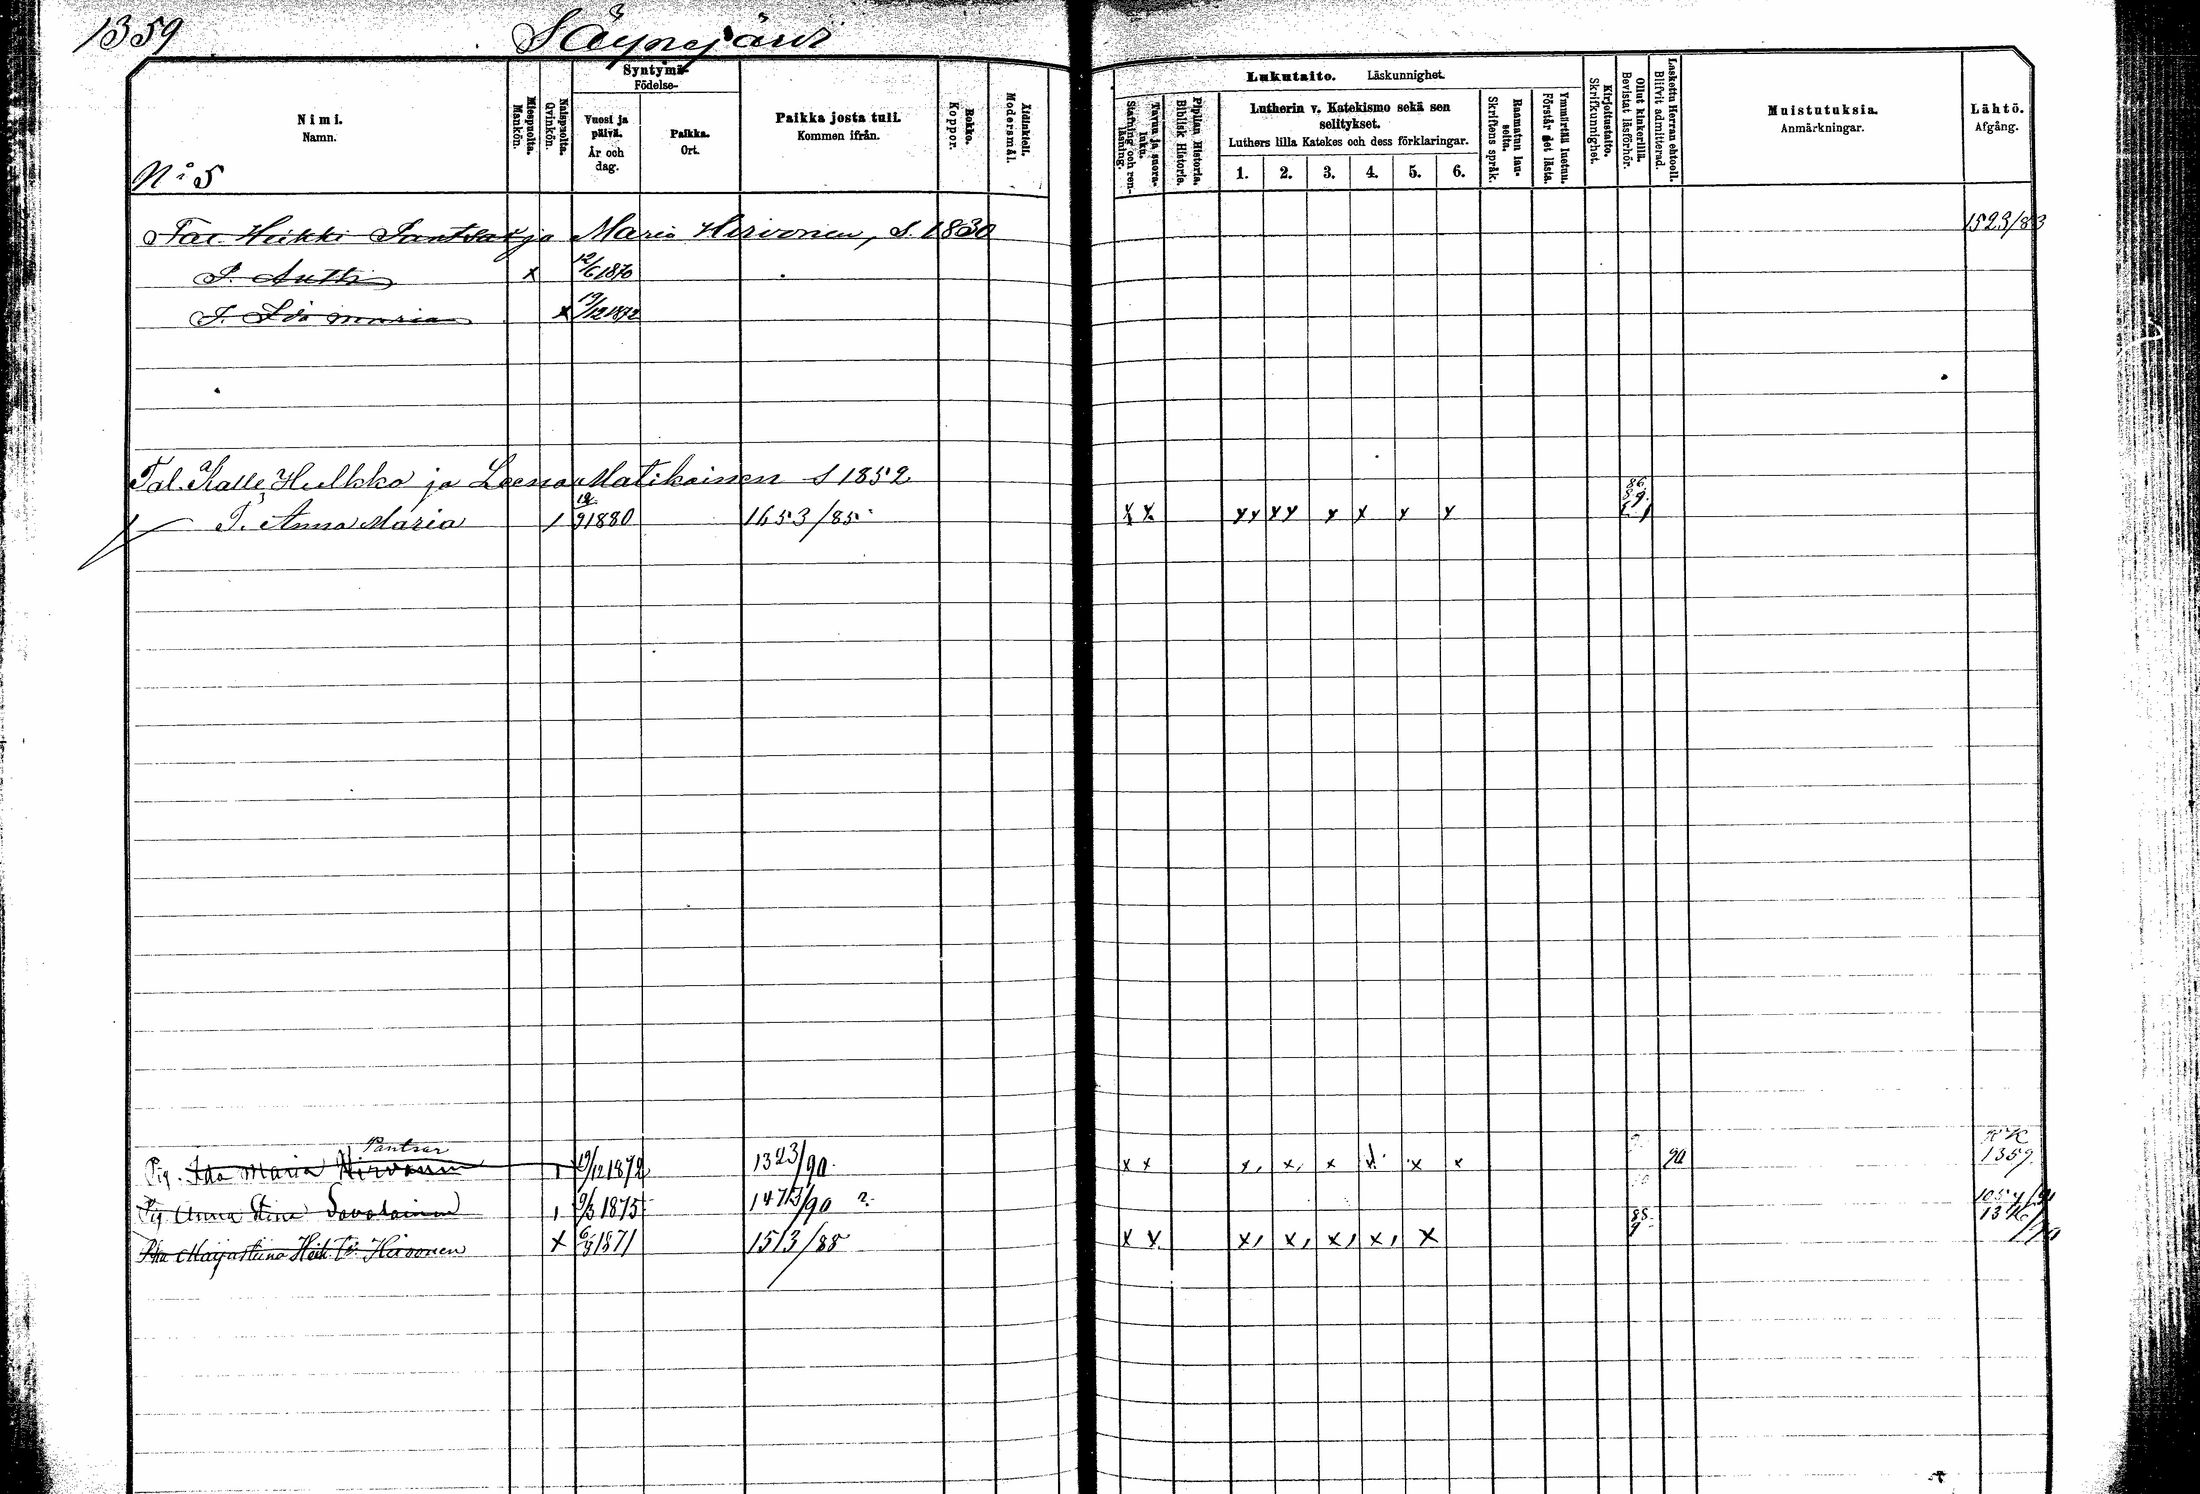 1359
Säynejärvi
Nimi.
Namn.
Miespuolta.
Mankön.
Naispuolta.
Qvinkön.
Syntymä-
Födelse-
Vuosi ja päivä.
År och dag.
Paikka.
Ort.
Paikka josta tuli.
Kommen ifrån.
Rokko.
Koppor.
Äidinkieli.
Modersmål.
Lukutaito. Läskunnighet.
Tavuu ja suora-luku.
Stafning och ren-läsning.
Piplian Historia.
Biblisk Historie.
Lutherin v. Katekismo sekä sen
selitykset.
Luthers lilla Katekes och dess förklaringar.
1. 2. 3. 4. 5. 6.
Raamatun lau-seita.
Skriftens språk.
Ymmärtää luetun.
Förstår det lästa.
Kirjoitustaito.
Skrifkunnighet.
Ollut kinkerillä.
Bevistat läsförhör.
Laskettu Herran ehtooll.
Blifvit admitterad.
Muistutuksia.
Anmärkningar.
Lähtö.
Afgång.
N:o 5
Tal. Heikki Pantsar ja Maria Hirvonen, S. 1830 1523/83
P. Antti x 12/6 1870
T. Ida Maria x 19/12 1872
Tal. Kalle Hulkko ja Leena Matikainen S 1852
T. Anna Maria 1 12/9 1880 1653/85 x x x x x x x x x x 86. 89.
Pantsar
Pig. Ida Maria Hirvonen 1 19/12 1872 1323/90 x x x, x, x x x x 90 KK 1359
Pig Anna Stina Savolainen 1 9/3 1875 1473/90 ?
Maijastiina Heik. t. Hirvonen x 6/3 1871 1513/88 x x x, x, x, x, x 88. 9